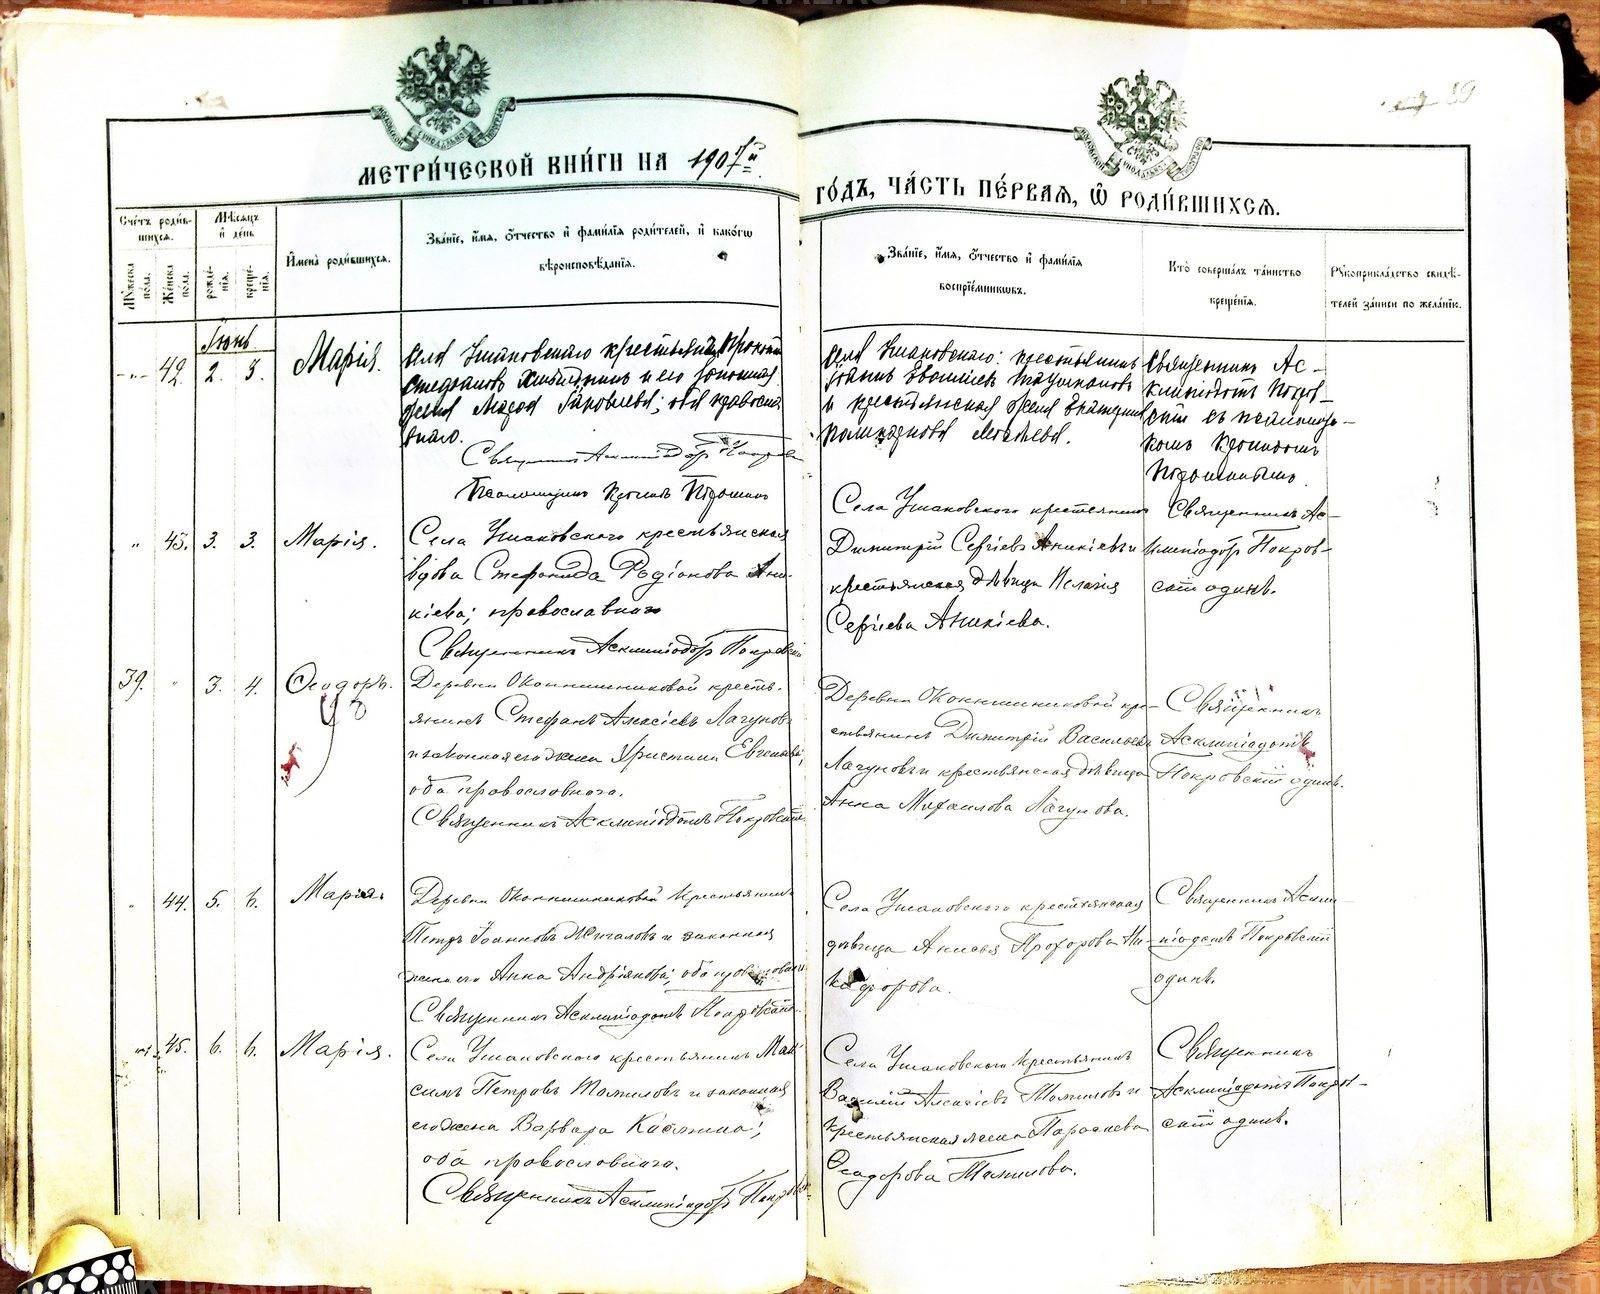 МЕТРИ́ЧЕСКОЙ КНИ́ГИ НА 1907й
ГО́ДЪ, ЧА́СТЬ ПЕ́РВАЯ, Ѽ РОДИ́ВШИХСЯ.
59
Сче́тъ роди́в-
шихся.
Му́жеска по́ла.
Же́нска по́ла.
Мѣ́сяцъ и де́нь
рожде́-
нїя.
креще́-
нїя.
И́мена̀ роди́вшихся.
Зва́нїе, и́мя, о́тчество и фами́лїя роди́телей, и како́гѡ
вѣроисповѣ́данїя.
Зва́нїе, и́мя, о́тчество и фами́лїя
воспрїе́мникѡвъ.
Кто̀ соверша́лъ та́инство
креще́нїя.
Рꙋкоприкла́дство свидѣ́-
телей за́писи по жела́нїю.
Іюнь
42. 2. 3. Марія.
Села Ушаковскаго крестьянинъ
и его законная
жена Іаковлева; оба православ
наго.
Священникъ Асклипіодотъ Покров
Псаломщикъ
Села Ушаковскаго: крестьянинъ
и крестьянская жена Екатерина
Священникъ Ас-
клипіодотъ Покров-
скій съ псаломщи-
комъ
" 43. 3. 3. Марія.
Села Ушаковского крестьянская
вдова Стефанида Родіонова Ани-
кіева; православнаго
Священникъ Асклипіодотъ Покровскій
Села Ушаковского крестьянинъ
Димитрій Сергіевъ Аникіевъ и
крестьянская дѣвица Пелагія
Сергіева Аникіева.
Священникъ Ас-
клипіодотъ Покров-
скій одинъ.
39. " 3. 4. Ѳеодоръ.
Деревни Оконнишниковой кресть-
янинъ Стефанъ Алексіевъ Лагуновъ
и законная его жена Христина Евгеніева;
оба православнаго.
Священникъ Асклипіодотъ Покровскій
Деревни Оконнишниковой кре-
стьянинъ Димитрій Васильевъ
Лагуновъ и крестьянская дѣвица
Анна Михаилова Лагунова.
Священникъ
Асклипіодотъ
Покровскій одинъ.
" 44. 5. 6. Марія.
Деревни Оконнишниковой крестьянинъ
Петръ Іоанновъ Жигаловъ и законная
жена его Анна Андріянова; оба православнаго
Священникъ Асклипіодотъ Покровскій
Села Ушаковского крестьянская
дѣвица Анисья Прохорова Ни-
кифорова.
Священникъ Аскли-
піодотъ Покровскій
одинъ.
45. 6. 6. Марія.
Села Ушаковского крестьянинъ Мак-
симъ Петровъ Томиловъ и законная
его жена Варвара Касьянова;
оба православнаго.
Священникъ Асклипіодотъ Покровск
Села Ушаковского крестьянинъ
Василій Алексіевъ Томиловъ и
крестьянская жена Параскева
Ѳеодорова Томилова.
Священникъ
Асклипіодотъ Покров-
скій одинъ.